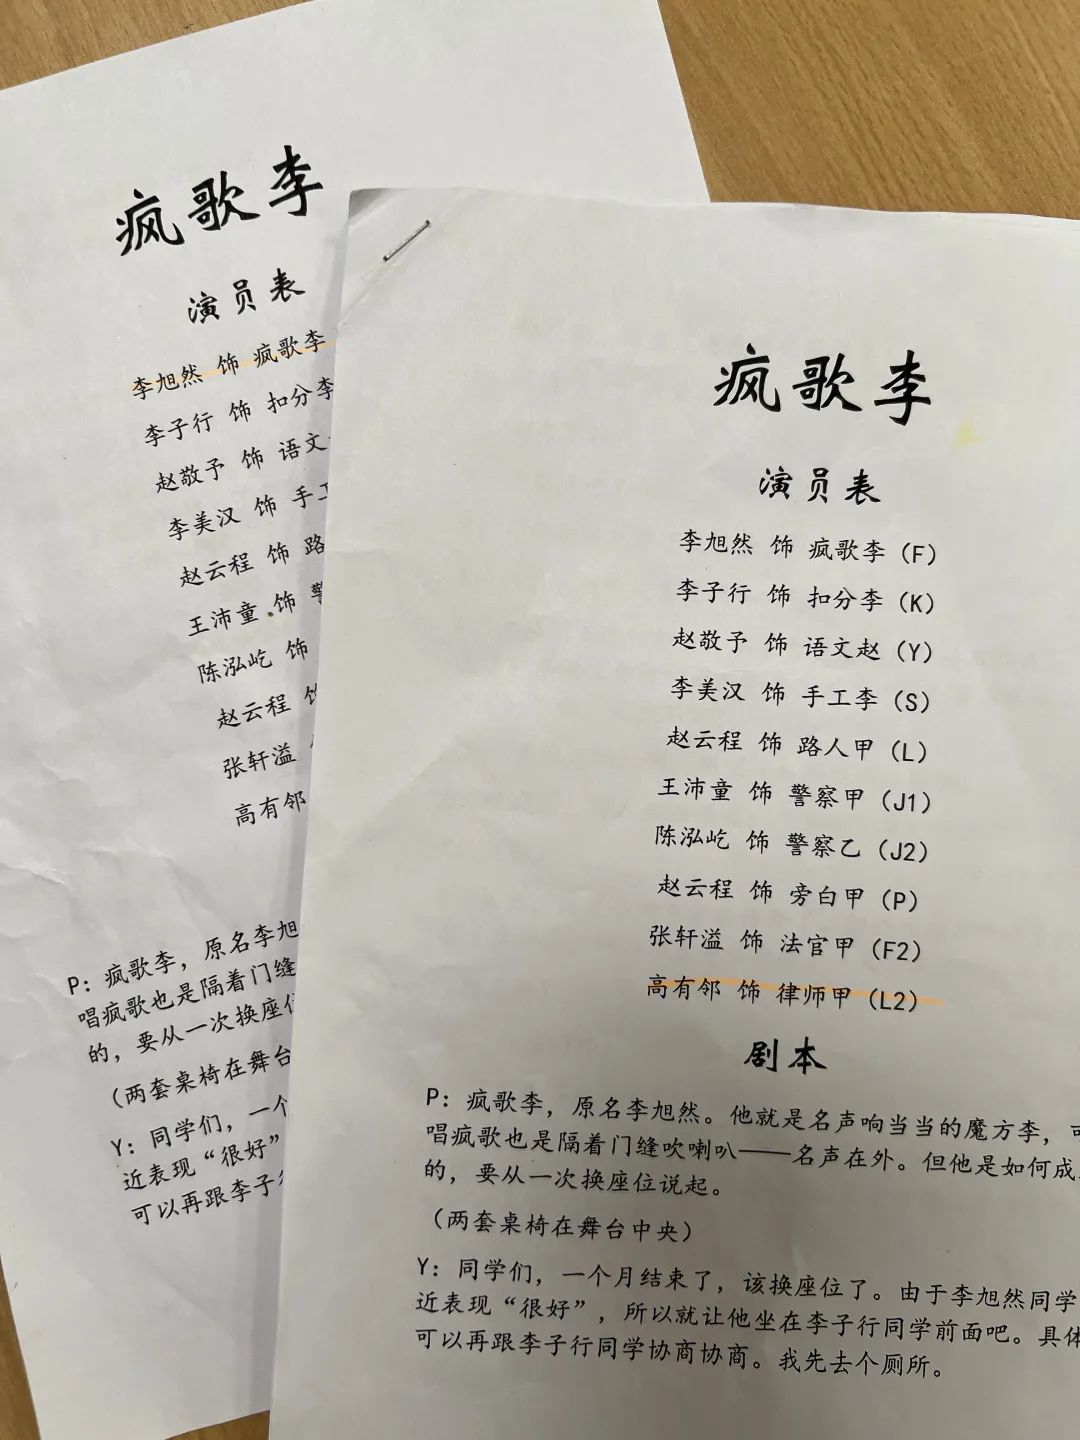 疯歌李
演员表
李旭然 饰 疯歌李
李子行 饰 扣分李
赵敬予 饰 语文
李美汉 饰 手工
赵云程 饰 路
王沛童 饰 警
陈泓屹 饰
赵云程 饰
张轩溢
高有邻
P：疯歌李，原名李旭
唱疯歌也是隔着门缝
的，要从一次换座位
（两套桌椅在舞台
Y：同学们，一个
近表现“很好”
可以再跟李子行
疯歌李
演员表
李旭然 饰 疯歌李（F）
李子行 饰 扣分李（K）
赵敬予 饰 语文赵（Y）
李美汉 饰 手工李（S）
赵云程 饰 路人甲（L）
王沛童 饰 警察甲（J1）
陈泓屹 饰 警察乙（J2）
赵云程 饰 旁白甲（P）
张轩溢 饰 法官甲（F2）
高有邻 饰 律师甲（L2）
剧本
P：疯歌李，原名李旭然。他就是名声响当当的魔方李，可
唱疯歌也是隔着门缝吹喇叭——名声在外。但他是如何成
的，要从一次换座位说起。
（两套桌椅在舞台中央）
Y：同学们，一个月结束了，该换座位了。由于李旭然同学
近表现“很好”，所以就让他坐在李子行同学前面吧。具体
可以再跟李子行同学协商协商。我先去个厕所。